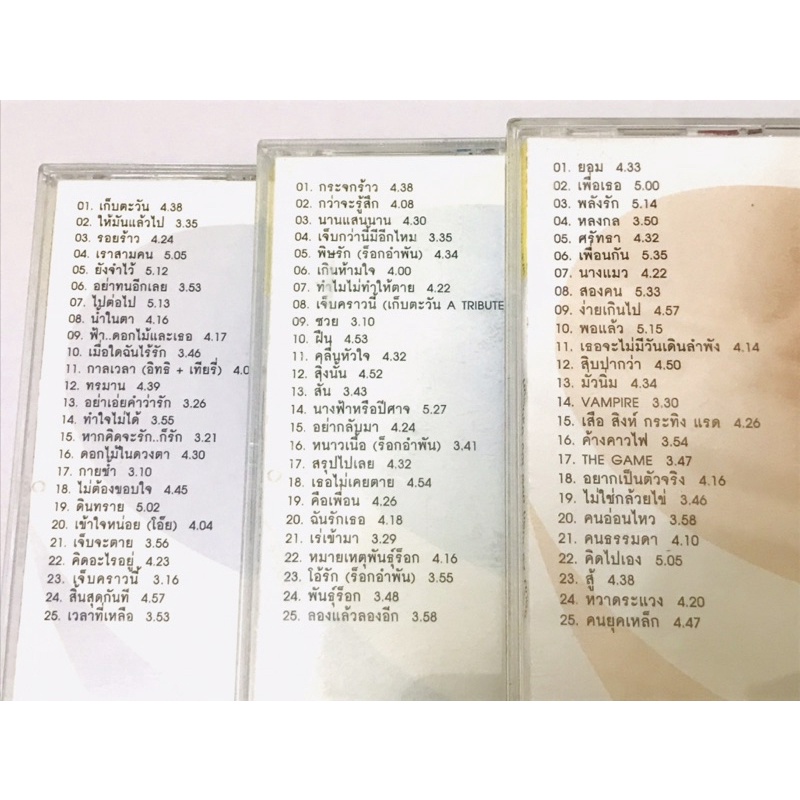 01. เก็บตะวัน 4.38
02. ให้มันแล้วไป 3.35
03. รอยร้าว 4.24
04. เราสามคน 5.05
05. ยังจำไว้ 5.12
06. อย่าทนอีกเลย 3.53
07. ไปต่อไป 5.13
08. น้ำในตา 4.16
09. ฟ้า..ดอกไม้และเธอ 4.17
10. เมื่อใดฉันไร้รัก 3.46
11. กาลเวลา (อิทธิ + เทียรี่) 4.0
12. ทรมาน 4.39
13. อย่าเอ่ยคำว่ารัก 3.26
14. ทำใจไม่ได้ 3.55
15. หากคิดจะรัก..ก็รัก 3.21
16. ดอกไม้ในดวงตา 4.30
17. กายช้ำ 3.10
18. ไม่ต้องขอบใจ 4.45
19. ดินทราย 5.02
20. เข้าใจหน่อย (โอ๊ย) 4.04
21. เจ็บจะตาย 3.56
22. คิดอะไรอยู่ 4.23
23. เจ็บคราวนี้ 3.16
24. สิ้นสุดกันที 4.57
25. เวลาที่เหลือ 3.53
01. กระจกร้าว 4.38
02. กว่าจะรู้สึก 4.08
03. นานแสนนาน 4.30
04. เจ็บกว่านี้มีอีกไหม 3.35
05. พิษรัก (ร็อกอำพัน) 4.34
06. เกินห้ามใจ 4.00
07. ทำไมไม่ทำให้ตาย 4.22
08. เจ็บคราวนี้ (เก็บตะวัน A TRIBUTE
09. ซวย 3.10
10. ฝืน 4.53
11. คลื่นหัวใจ 4.32
12. สิ่งนั้น 4.52
13. สั่น 3.43
14. นางฟ้าหรือปีศาจ 5.27
15. อย่ากลับมา 4.24
16. หนาวเนื้อ (ร็อกอำพัน) 3.41
17. สรุปไปเลย 4.32
18. เธอไม่เคยตาย 4.54
19. คือเพื่อน 4.26
20. ฉันรักเธอ 4.18
21. เร่เข้ามา 3.29
22. หมายเหตุพันธุ์ร็อก 4.16
23. โอ้รัก (ร็อกอำพัน) 3.55
24. พันธุ์ร็อก 3.48
25. ลองแล้วลองอีก 3.58
01. ยอม 4.33
02. เพื่อเธอ 5.00
03. พลังรัก 5.14
04. หลงกล 3.50
05. ศรัทธา 4.32
06. เพื่อนกัน 5.35
07. นางแมว 4.22
08. สองคน 5.33
09. ง่ายเกินไป 4.57
10. พอแล้ว 5.15
11. เธอจะไม่มีวันเดินลำพัง 4.14
12. สิบปากว่า 4.50
13. มัวนิ่ม 4.34
14. VAMPIRE 3.30
15. เสือ สิงห์ กระทิง แรด 4.26
16. ค้างคาวไฟ 3.54
17. THE GAME 3.47
18. อยากเป็นตัวจริง 4.16
19. ไม่ใช่กล้วยไข่ 3.46
20. คนอ่อนไหว 3.58
21. คนธรรมดา 4.10
22. คิดไปเอง 5.05
23. สู้ 4.38
24. หวาดระแวง 4.20
25. คนยุคเหล็ก 4.47